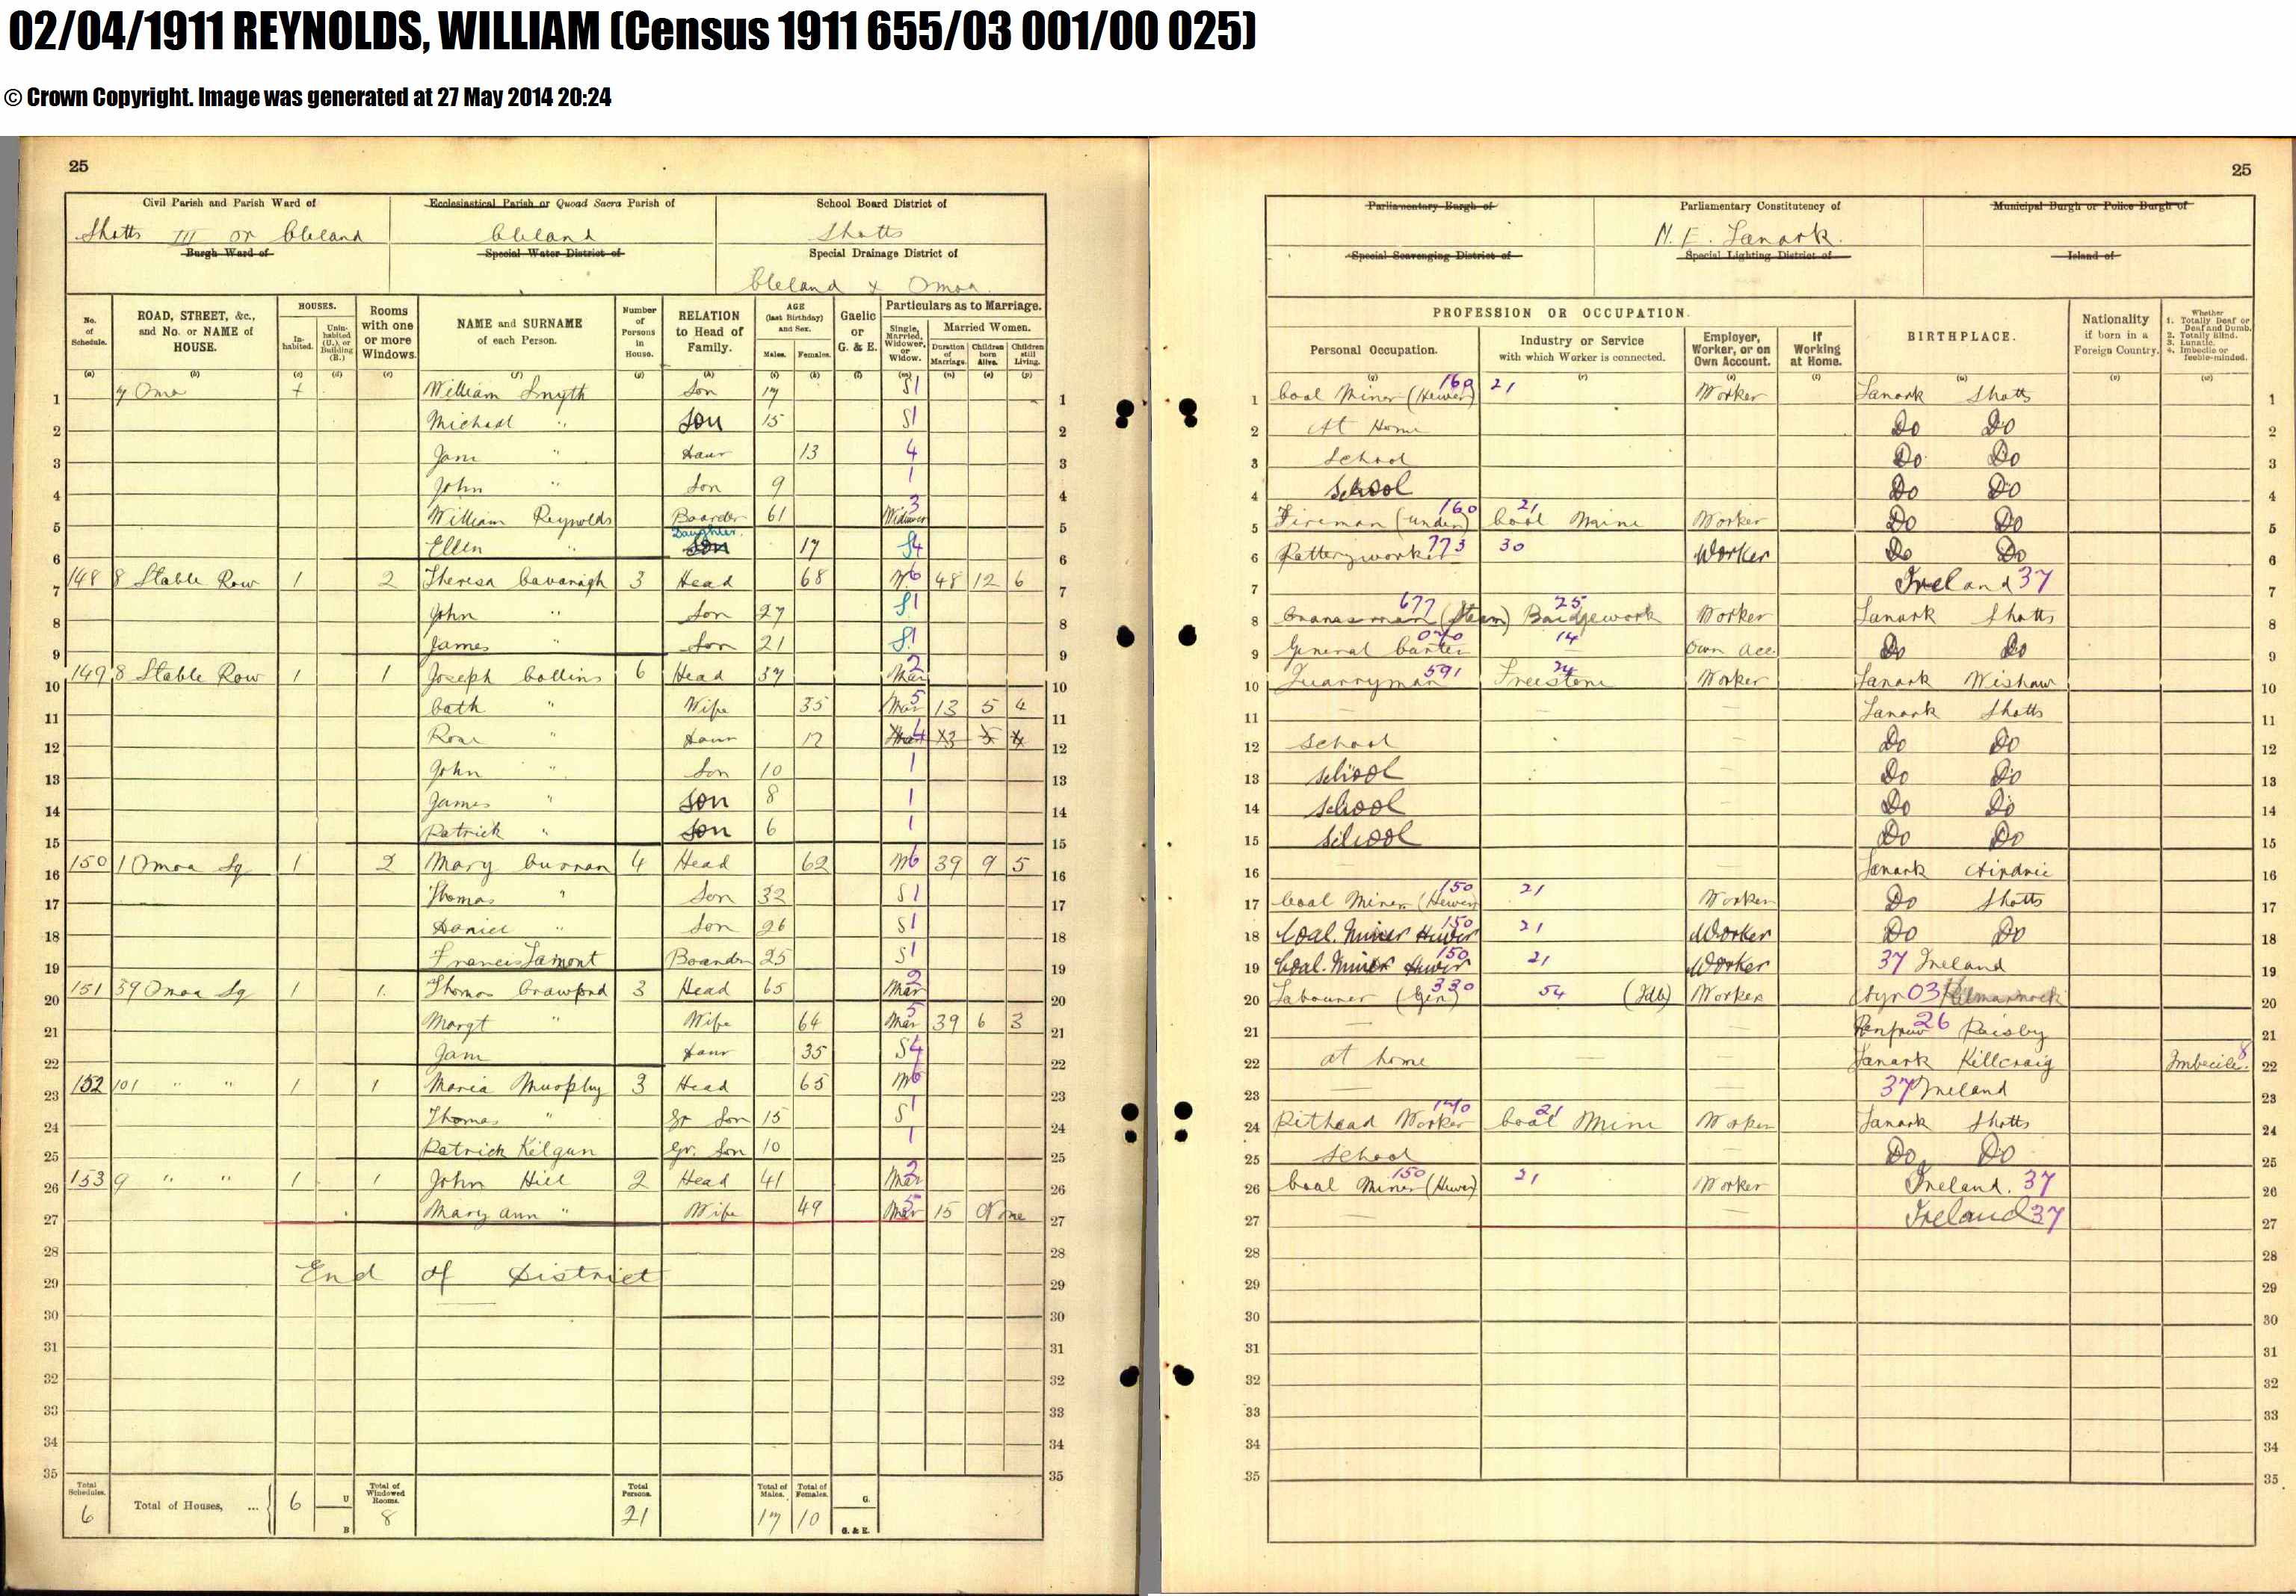 02/04/1911 REYNOLDS, WILLIAM (Census 1911 655/03 001/00 025)
© Crown Copyright. Image was generated at 27 May 2014 20:24
25
25
Civil Parish and Parish Ward of
Shotts III or Cleland
Ecclesiastical Parish or Quoad Sacra Parish of
Cleland
School Board District of
Shotts
Burgh Ward of
Special Water District of
Special Drainage District of
Cleland & Omoa
Parliamentary Burgh of
Parliamentary Constituency of
N.E. Lanark.
Municipal Burgh or Police Burgh of
Special Scavenging District of
Special Lighting District of
Island of
No. of Schedule. (a)
ROAD, STREET, &c., and No. or NAME of HOUSE. (b)
HOUSES.
In-habited. (c)
Unin-habited (U.), or Building (B.) (d)
Rooms with one or more Windows. (e)
NAME and SURNAME of each Person. (f)
Number of Persons in House. (g)
RELATION to Head of Family. (h)
AGE (last Birthday) and Sex.
Males. (i)
Females. (k)
Gaelic or G. & E. (l)
Particulars as to Marriage.
Single, Married, Widower, or Widow. (m)
Married Women.
Duration of Marriage. (n)
Children born Alive. (o)
Children still Living. (p)
PROFESSION OR OCCUPATION.
Personal Occupation. (q)
Industry or Service with which Worker is connected. (r)
Employer, Worker, or on Own Account. (s)
If Working at Home. (t)
BIRTHPLACE. (u)
Nationality if born in a Foreign Country. (v)
Whether 1. Totally Deaf or Deaf and Dumb. 2. Totally Blind. 3. Lunatic. 4. Imbecile or feeble-minded. (w)
1 William Smyth Son 17 S 1 Coal Miner (Hewer) 160 21 Worker Lanark Shotts
2 Michael " Son 15 S 1 At Home Do Do
3 Jane " Daur 13 4 School Do Do
4 John " Son 9 1 School Do Do
5 William Reynolds Boarder 61 Widower 3 Fireman (under) 160 Coal Mine 21 Worker Do Do
6 Ellen " Daughter Son 17 S 4 Potteryworker 773 30 Worker Do Do
7 148 8 Stable Row 1 2 Theresa Cavanagh 3 Head 68 W. 6 48 12 6 Ireland 37
8 John " Son 27 S 1 Cranesman (Steam) 677 Bridgework 25 Worker Lanark Shotts
9 James " Son 21 S. 1 General Carter 14 Own Acc. Do Do
10 149 8 Stable Row 1 1 Joseph Collins 6 Head 37 Mar 2 Quarryman 591 Freestone 24 Worker Lanark Wishaw
11 Cath " Wife 35 Mar 5 13 5 4 Lanark Shotts
12 Rose " Daur 12 4 School Do Do
13 John " Son 10 1 School Do Do
14 James " Son 8 1 School Do Do
15 Patrick " Son 6 1 School Do Do
16 150 1 Omoa Sq 1 2 Mary Curran 4 Head 62 W 6 39 9 5 Lanark Airdrie
17 Thomas " Son 32 S 1 Coal Miner (Hewer) 150 21 Worker Do Shotts
18 Daniel " Son 26 S 1 Coal. Miner Hewer 150 21 Worker Do Do
19 Francis Lamont Boarder 25 S 1 Coal. Miner Hewer 150 21 Worker 37 Ireland
20 151 39 Omoa Sq 1 1 Thomas Crawford 3 Head 65 Mar 2 Labourer (Gen) 330 54 Worker Ayr 03 Kilmarnock
21 Margt " Wife 64 Mar 5 39 6 3 Renfrew 26 Paisley
22 Jane Daur 35 S 4 at home Lanark Killcraig Imbecile. 8
23 152 101 " " 1 1 Maria Murphy 3 Head 65 W 6 37 Ireland
24 Thomas " Gr Son 15 S 1 Pithead Worker 170 Coal Mine 21 Worker Lanark Shotts
25 Patrick Kilgun Gr. Son 10 1 School Do Do
26 153 9 " " 1 1 John Hill 2 Head 41 Mar 2 Coal Miner (Hewer) 150 21 Worker Ireland. 37
27 Mary Ann " Wife 49 Mar 5 15 None Ireland 37
28
29 End of District
30
31
32
33
34
35
Total Schedules. 6
Total of Houses, ... 6 U B
Total of Windowed Rooms. 8
Total Persons. 21
Total of Males. 17
Total of Females. 10
G.
G. & E.